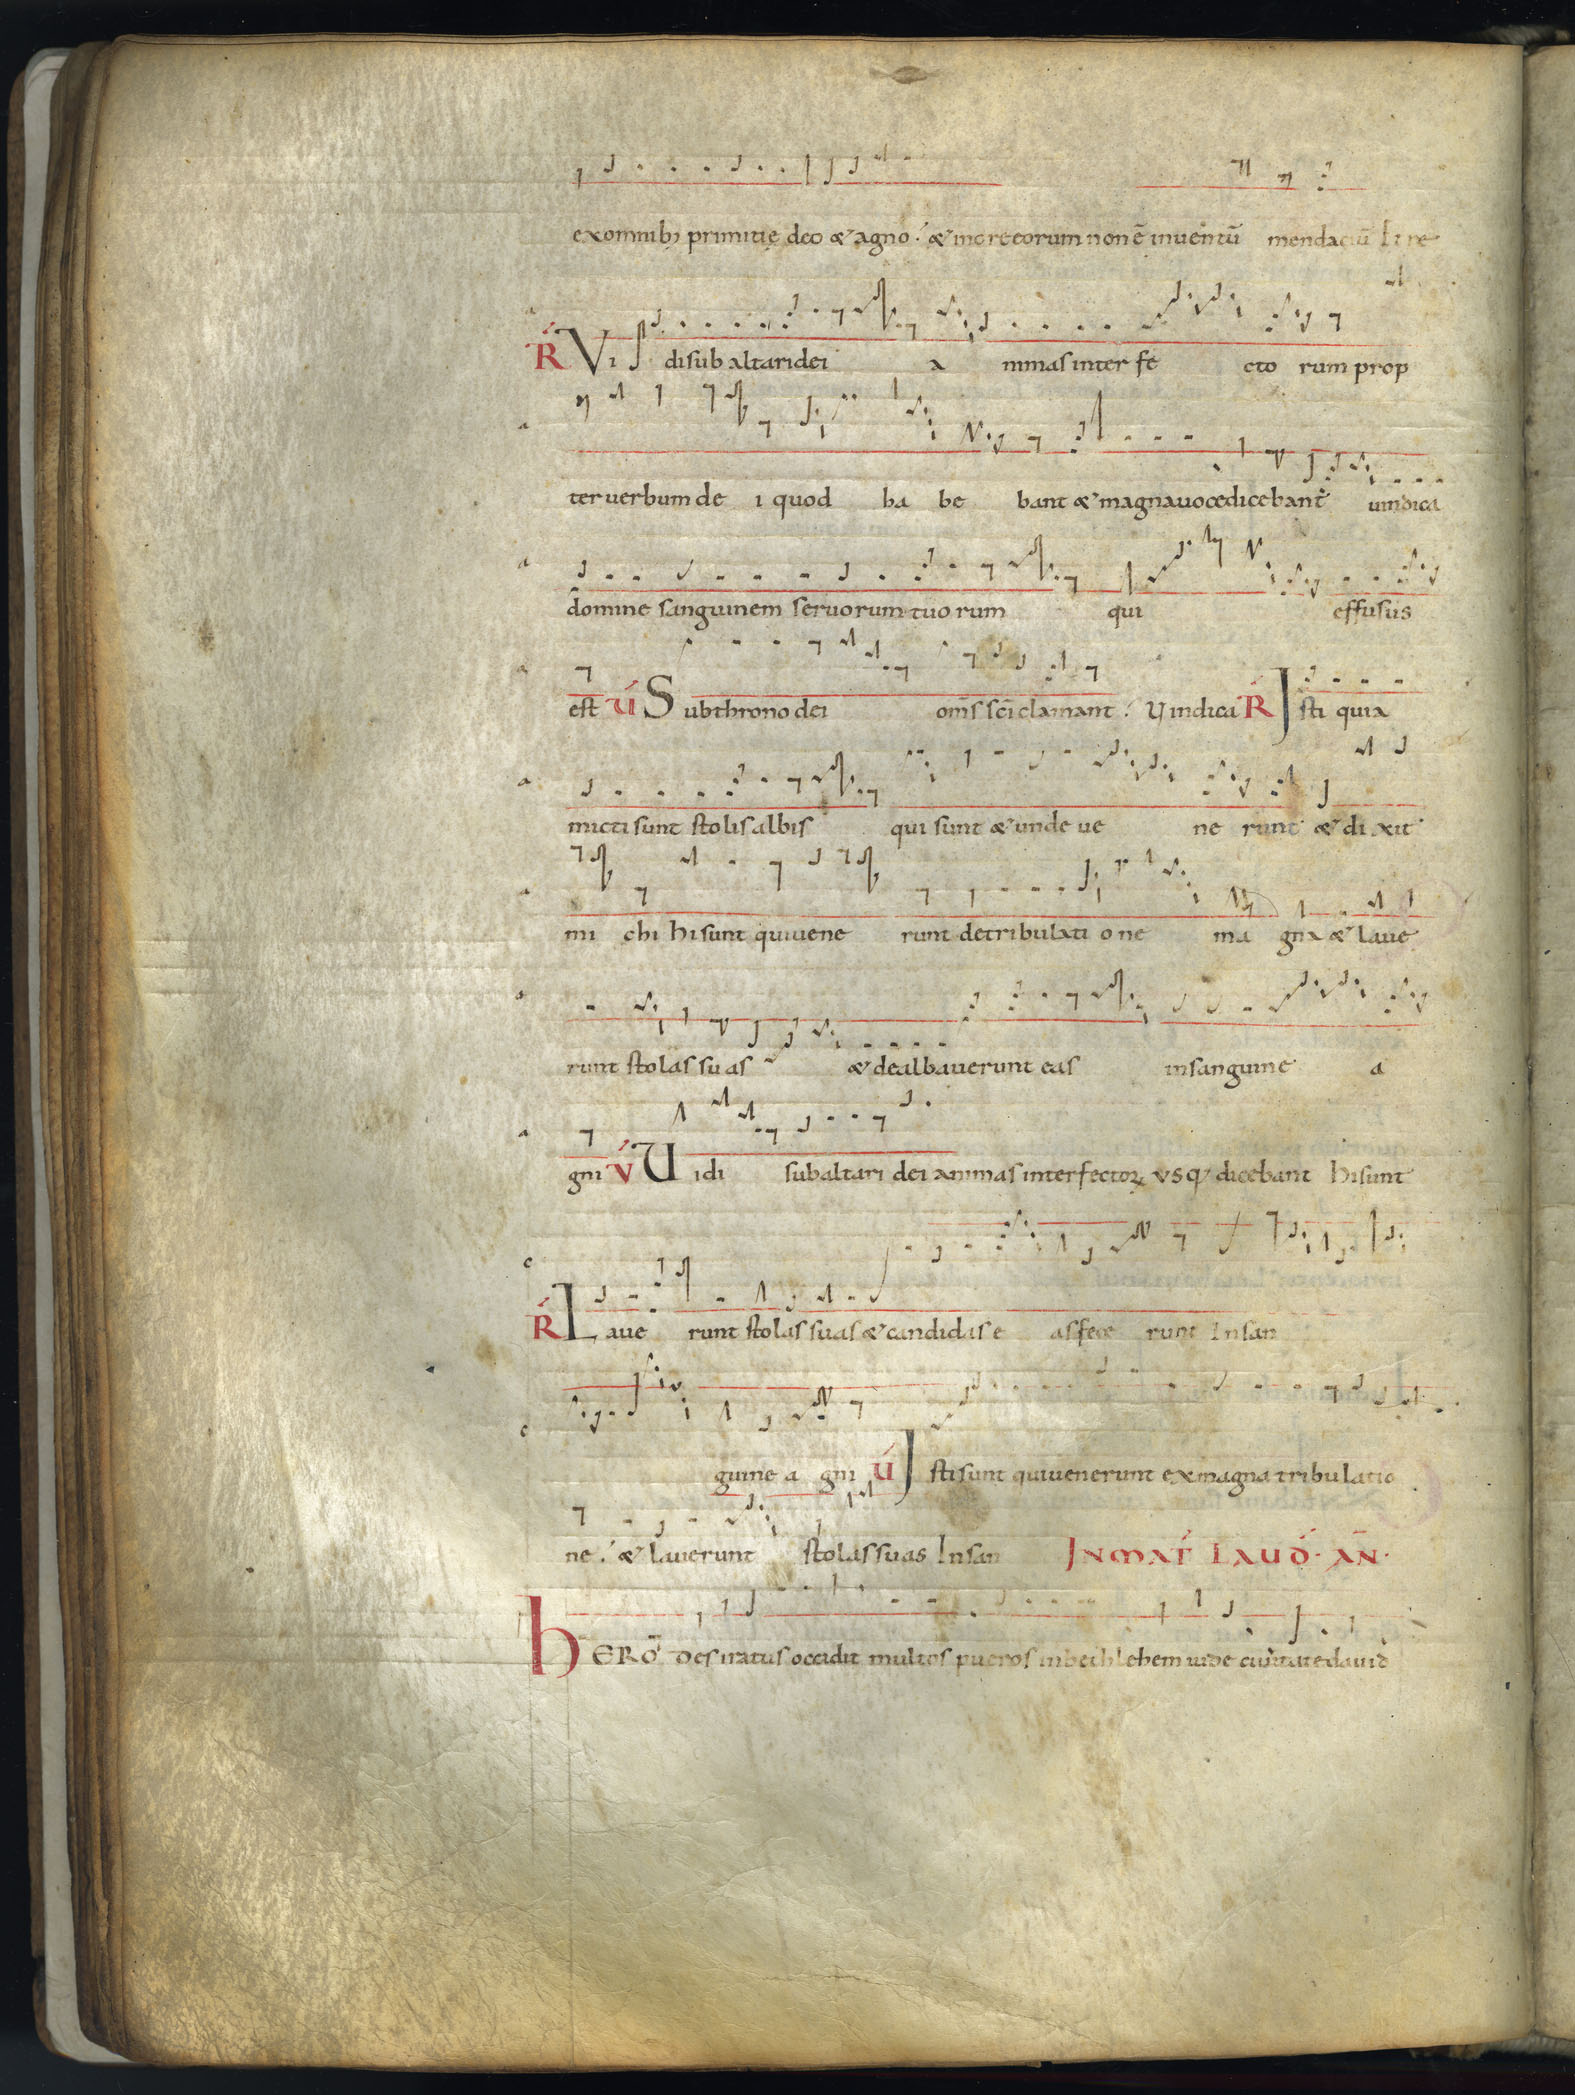 exomnibꝫ primitię deo & agno. & inore eorum non ē inuentū mendaciū
R̃ Vi di sub altari dei a nimas inter fe cto rum prop
ter uerbum de i quod ha be bant & magna uoce dicebant uindica
domine sanguinem seruorum tuo rum qui effusus
est V́ Sub throno dei om̄s sc̄i clamant. Vindica R̃ Isti qui a
micti sunt stolis albis qui sunt & unde ue ne runt & di xit
mi chi hi sunt qui uene runt de tribulati one ma gna & laue
runt stolas su as & dealbauerunt eas in sanguine a
gni V́ Uidi sub altari dei animas interfectoꝝ vsq; dicebant hi sunt
R̃ Laue runt stolas suas & candidas e as fece runt In san
guine a gni V́ Isti sunt qui uenerunt ex magna tribulatio
ne. & lauerunt stolas suas In san IN MAT̃ LAUD̃. AÑ.
hERODes iratus occidit multos pueros in bethlehem iude ciuitate dauid